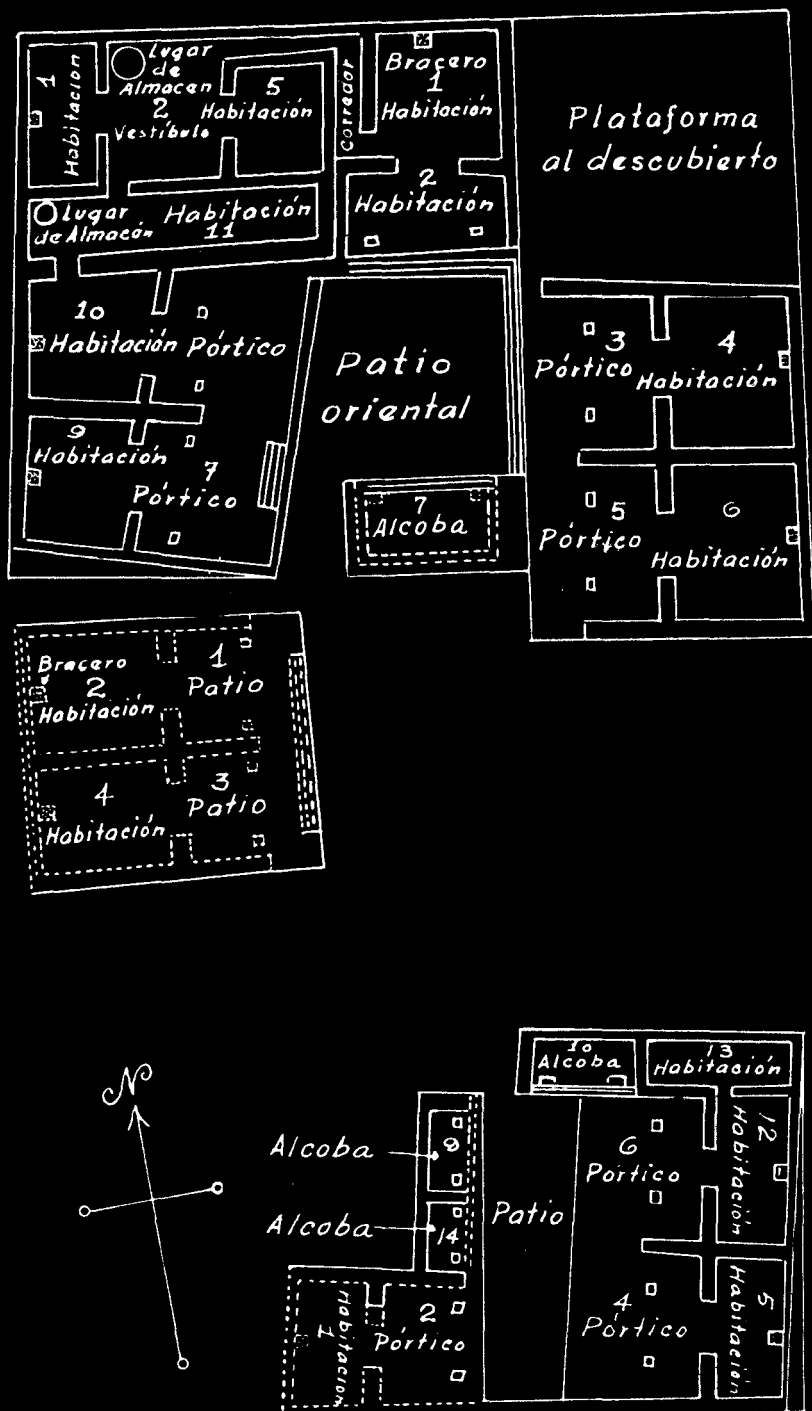 1
Habitación
Lugar
de
Almacen
2
Vestíbulo
5
Habitación
Corredor
Bracero
1
Habitación
2
Habitación
Plataforma
al descubierto
Lugar
de Almacón
Habitación
11
10
Habitación
Pórtico
9
Habitación
7
Pórtico
Patio
oriental
7
Alcoba
3
Pórtico
4
Habitación
5
Pórtico
6
Habitación
Bracero
2
Habitación
1
Patio
4
Habitación
3
Patio
N
10
Alcoba
13
Habitación
Alcoba
9
Alcoba
14
Patio
6
Pórtico
12
Habitación
1
Habitacion
2
Pórtico
4
Pórtico
5
Habitación